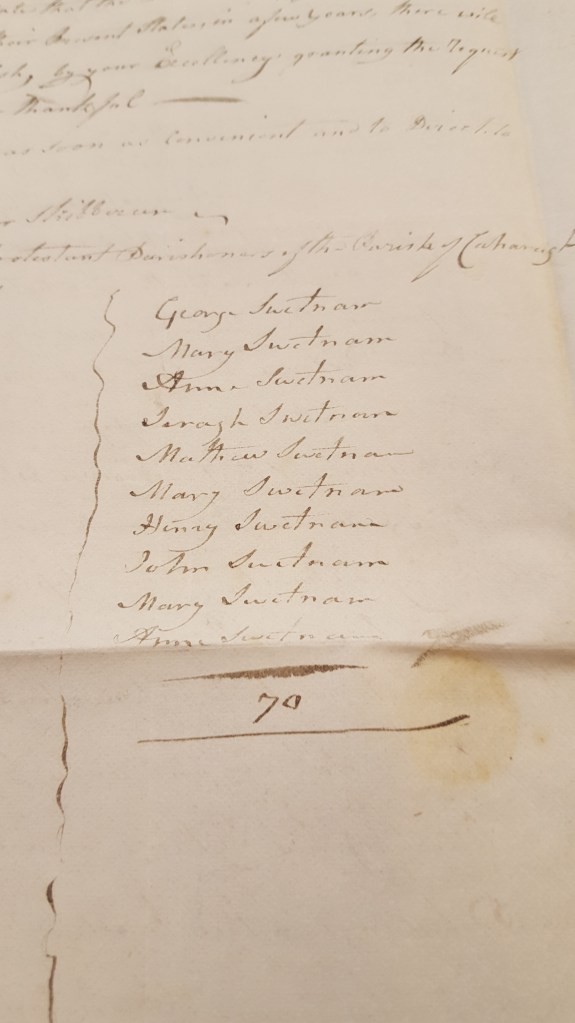 that the
their Present State in a few years, there will
by your Excellency granting the Request
thankful
as soon as Convenient and to Direct to
Protestant Parishoners of the Parish of Caharagh
George Swetnam
Mary Swetnam
Anne Swetnam
Seragh Swetnam
Mathew Swetnam
Mary Swetnam
Henry Swetnam
John Swetnam
Mary Swetnam
Anne Swetnam
70